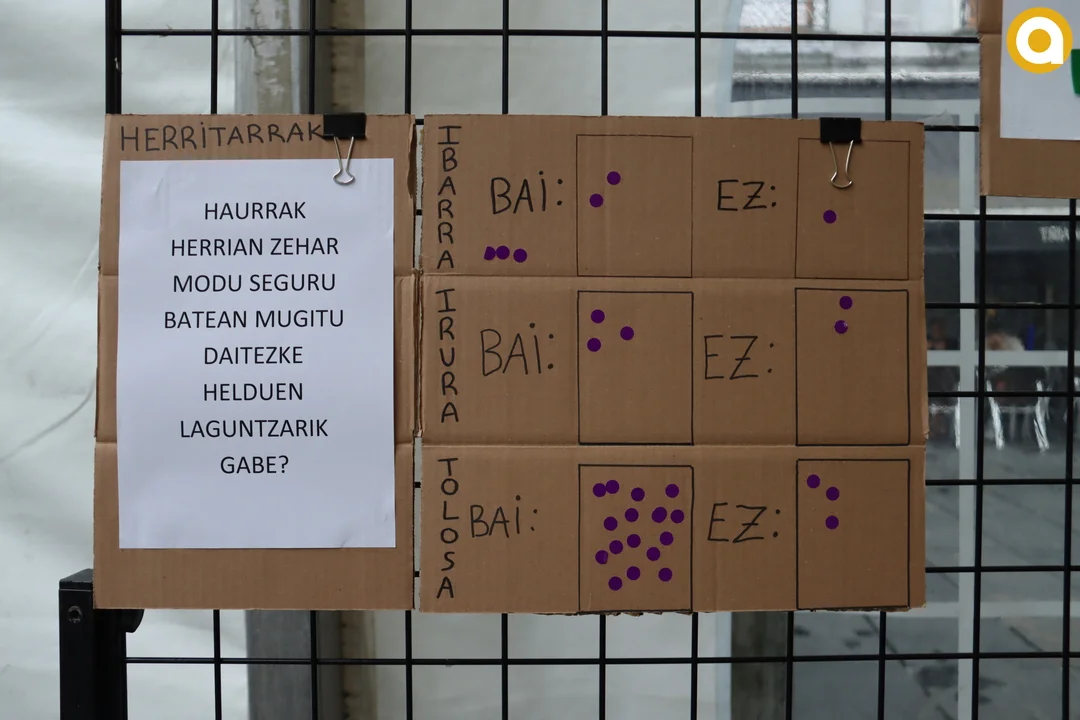 HERRITARRAK
HAURRAK
HERRIAN ZEHAR
MODU SEGURU
BATEAN MUGITU
DAITEZKE
HELDUEN
LAGUNTZARIK
GABE?
IBARRA
BAI:
EZ:
IRURA
BAI:
EZ:
TOLOSA
BAI:
EZ:
a